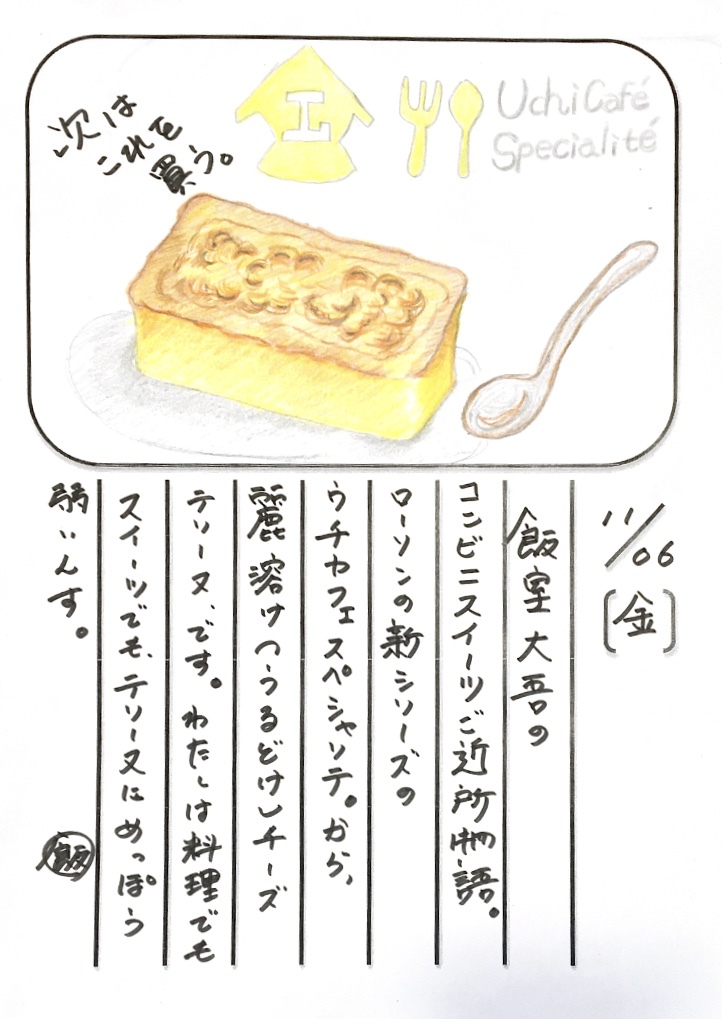 次は
これを
買う。
エ
Uchi Café
Specialité
11/06
〔金〕
飯室 大吾の
コンビニスイーツご近所物語。
ローソンの新シリーズの
ウチカフェスペシャリテ。から、
麗溶け(うるどけ)チーズ
テリーヌ、です。わたしは料理でも
スイーツでも、テリーヌにめっぽう
弱いんす。
飯